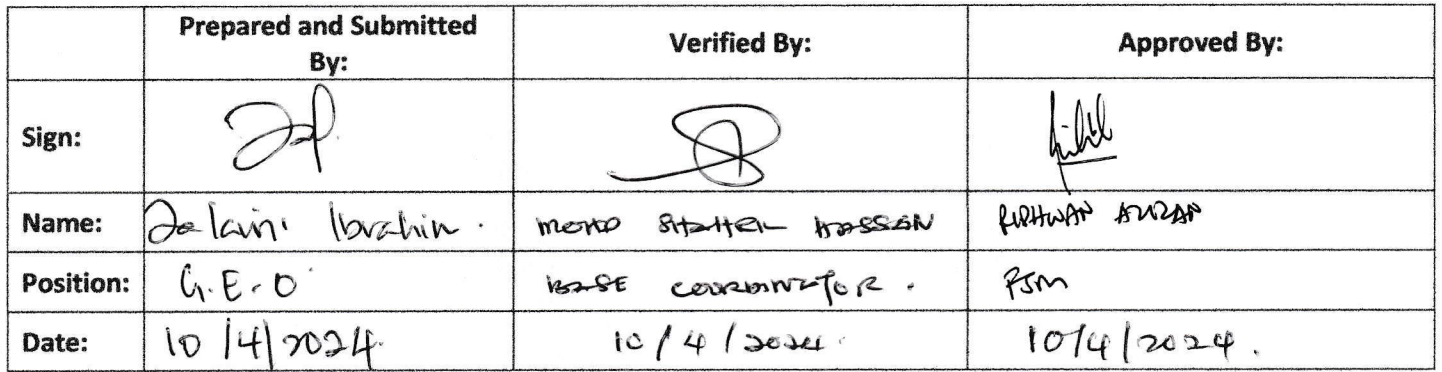 Prepared and Submitted By: Verified By: Approved By:
Sign:
Name: Zalaini Ibrahim. MOHD HASSAN RIDHWAN
Position: G.E.O BASE COORDINATOR. PSM
Date: 10/4/2024. 10/4/2024 10/4/2024.